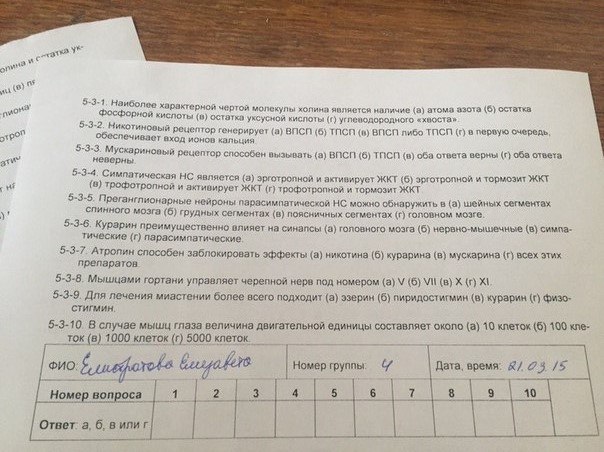 олина и остатка ук-
иц (в) пя
5-3-1. Наиболее характерной чертой молекулы холина является наличие (а) атома азота (б) остатка
фосфорной кислоты (в) остатка уксусной кислоты (г) углеводородного «хвоста».
5-3-2. Никотиновый рецептор генерирует (а) ВПСП (б) ТПСП (в) ВПСП либо ТПСП (г) в первую очередь,
обеспечивает вход ионов кальция.
5-3-3. Мускариновый рецептор способен вызывать (а) ВПСП (б) ТПСП (в) оба ответа верны (г) оба ответа
неверны.
5-3-4. Симпатическая НС является (а) эрготропной и активирует ЖКТ (б) эрготропной и тормозит ЖКТ
(в) трофотропной и активирует ЖКТ (г) трофотропной и тормозит ЖКТ
5-3-5. Преганглионарные нейроны парасимпатической НС можно обнаружить в (а) шейных сегментах
спинного мозга (б) грудных сегментах (в) поясничных сегментах (г) головном мозге.
5-3-6. Курарин преимущественно влияет на синапсы (а) головного мозга (б) нервно-мышечные (в) симпа-
тические (г) парасимпатические.
5-3-7. Атропин способен заблокировать эффекты (а) никотина (б) курарина (в) мускарина (г) всех этих
препаратов.
5-3-8. Мышцами гортани управляет черепной нерв под номером (а) V (б) VII (в) X (г) XI.
5-3-9. Для лечения миастении более всего подходит (а) эзерин (б) пиридостигмин (в) курарин (г) физо-
стигмин.
5-3-10. В случае мышц глаза величина двигательной единицы составляет около (а) 10 клеток (б) 100 кле-
ток (в) 1000 клеток (г) 5000 клеток.
ФИО: Елистратова Елизавета Номер группы: 4 Дата, время: 21.03.15
Номер вопроса 1 2 3 4 5 6 7 8 9 10
Ответ: а, б, в или г